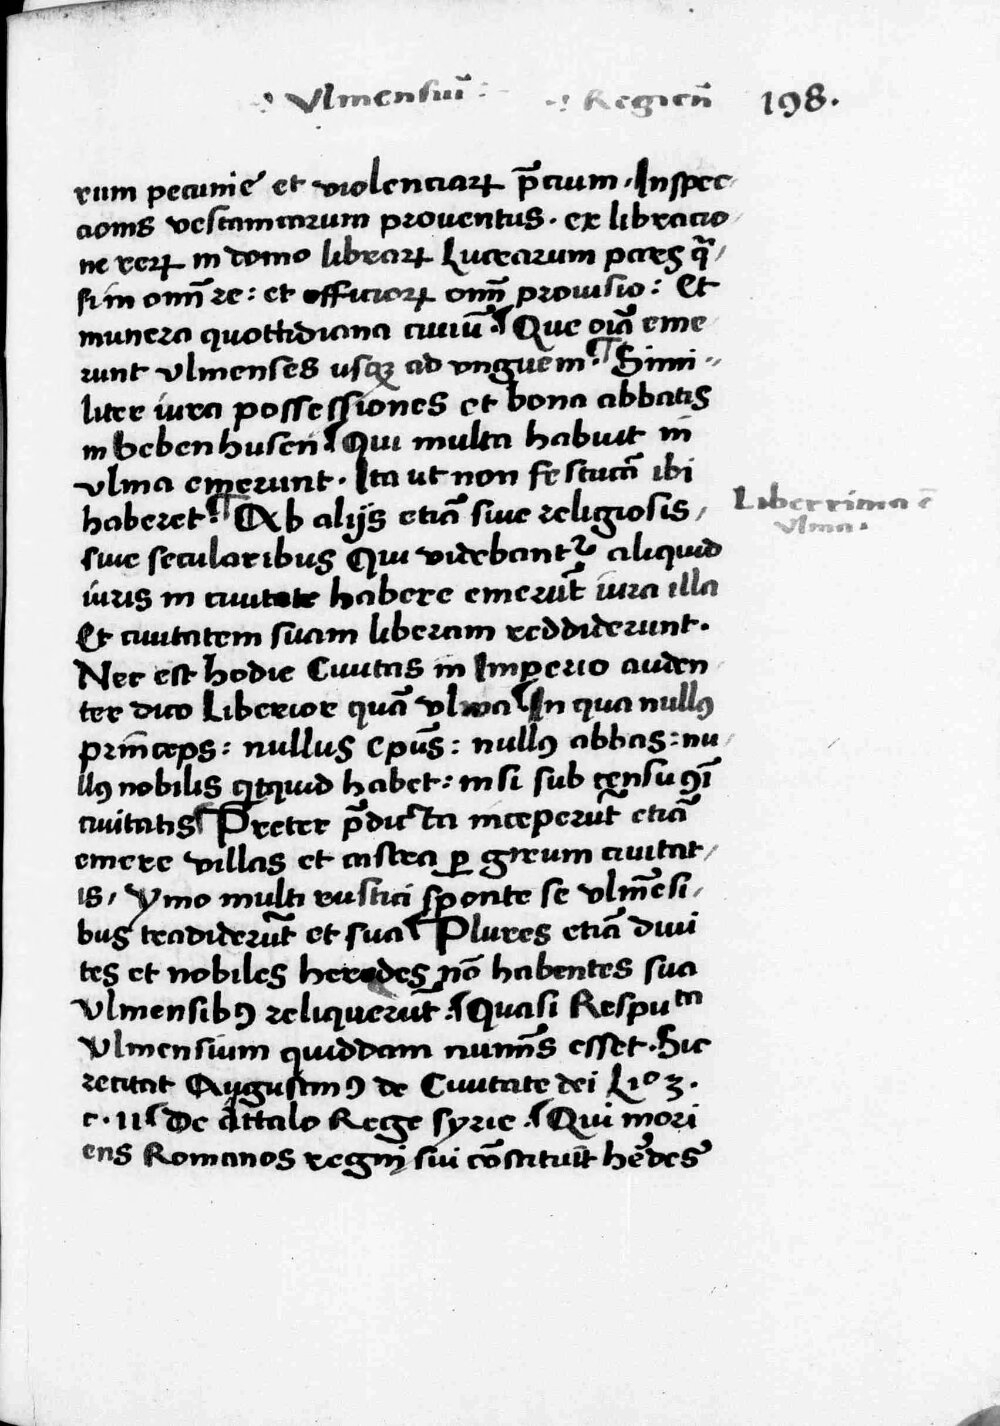 Vlmensiū Regień 198.
rum pecunie et violenciaꝝ p̄cium. Inspec
cionis vestimitarum proventus. ex libracio
ne rerꝝ in domo libraꝝ Lucrarum pars q̄
si in omī re: et officioꝝ omī provisio: Et
munera quottidiana civiū. Que oīa eme
runt Vlmenses usqꝫ ad vnguem. Simi-
liter iura possessiones et bona abbatis
in bebenhusen. Qui multa habuit in
vlma emerunt. Ita ut non festucā ibi
haberet. Ab alijs etiā sive religiosis,
sive secularibus Qui videbantr aliquid
iuris in civitate habere emerūt iura illa
Et civitatem suam liberam reddiderunt.
Liberrima ē
vlma.
Nec est hodie Civitas in Imperio auden
ter dico Liberior quā vlma In qua nullꝰ
princeps: nullus Epūs: nullꝰ abbas: nu
llꝰ nobilis qitquid habet: nisi sub censu ꝯi
civitatis Preter p̄dicta inceperūt etiā
emere villas et castra ꝑ girum civitat
is, Ymo multi rustici sponte se vlmēsi
bus tradiderūt et sua Plures etiā divi
tes et nobiles heredes nō habentes sua
Vlmensibꝰ reliquerūt. Quasi Resputa
Vlmensium quiddam numīs esset. Sic
recitat Augustinꝰ de Civitate dei Lio 3.
c. 11 De Attalo Rege syrie. Qui mori
ens Romanos regni sui cōstituīt hēdes